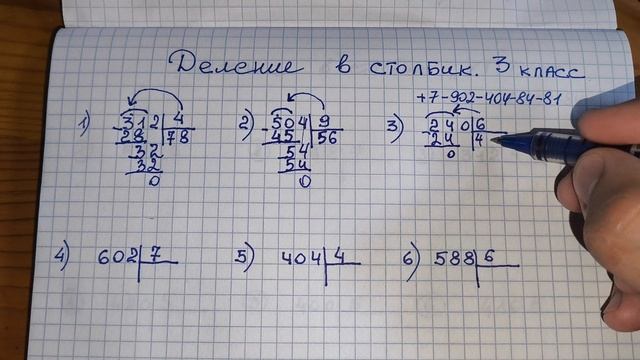 Деление в столбик. 3 класс
+7-902-404-84-81
1) 312 4 2) 504 9 3) 240 6
28 78 45 56 24 4
32 54 0
32 54
0 0
4) 602 7 5) 404 4 6) 588 6